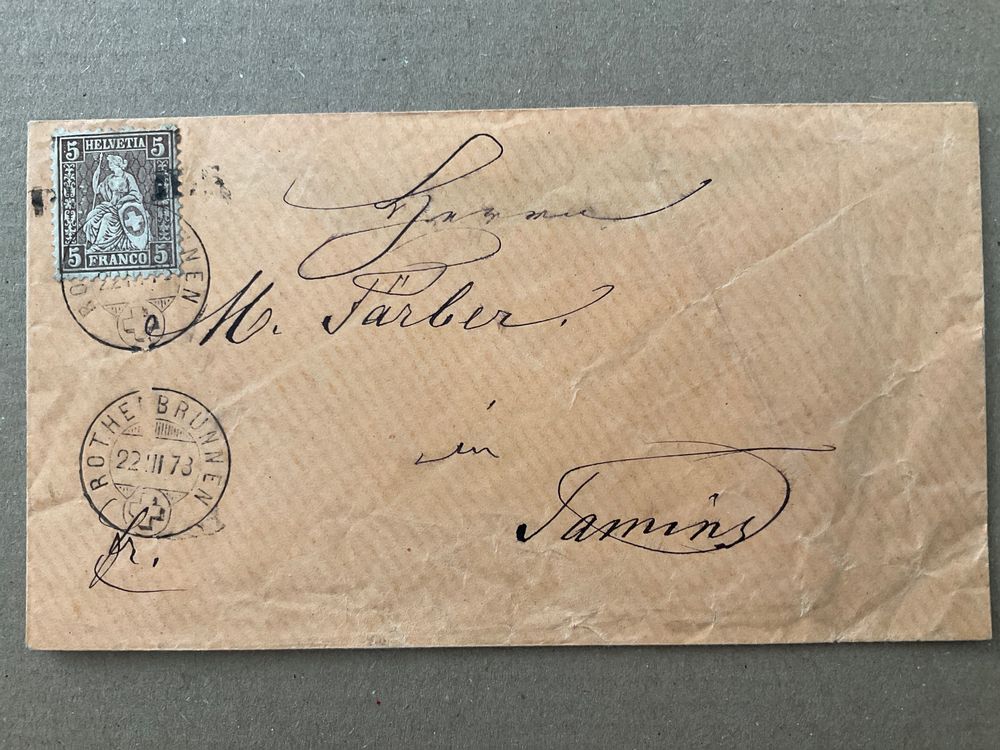 5 HELVETIA 5
5 FRANCO 5
ROTHENBRUNNEN
22 III 73
Herrn
M. Färber.
in
Tamins
ROTHENBRUNNEN
22 III 73
fr.